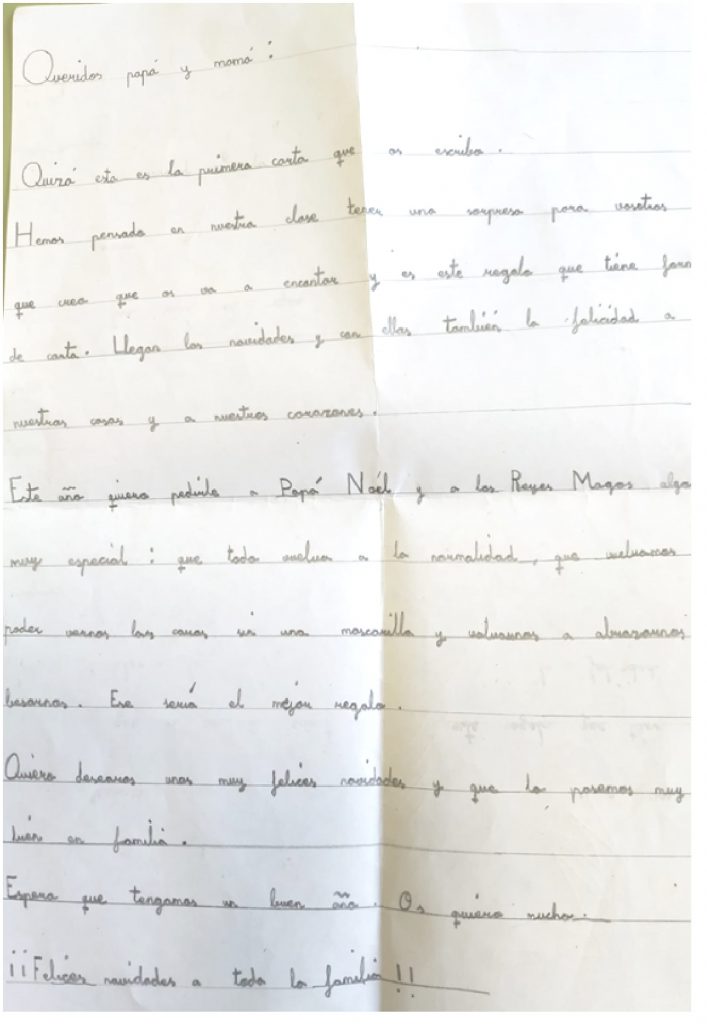 Queridos papá y mamá :
Quizá esta es la primera carta que os escribo .
Hemos pensado en nuestra clase tener una sorpresa para vosotros
que creo que os va a encantar y es este regalo que tiene form
de carta . Llegan las navidades y con ellas también la felicidad a
nuestras casas y a nuestros corazones .
Este año quiero pedirle a Papá Noél y a los Reyes Magos algo
muy especial : que todo vuelva a la normalidad , que volvamos
poder vernos las caras sin una mascarilla y volvamos a abrazarnos
besarnos . Ese sería el mejor regalo .
Quiero desearos unas muy felices navidades y que lo pasemos muy
bien en familia .
Espero que tengamos un buen año . Os quiero mucho .
¡¡Felices navidades a toda la familia !!